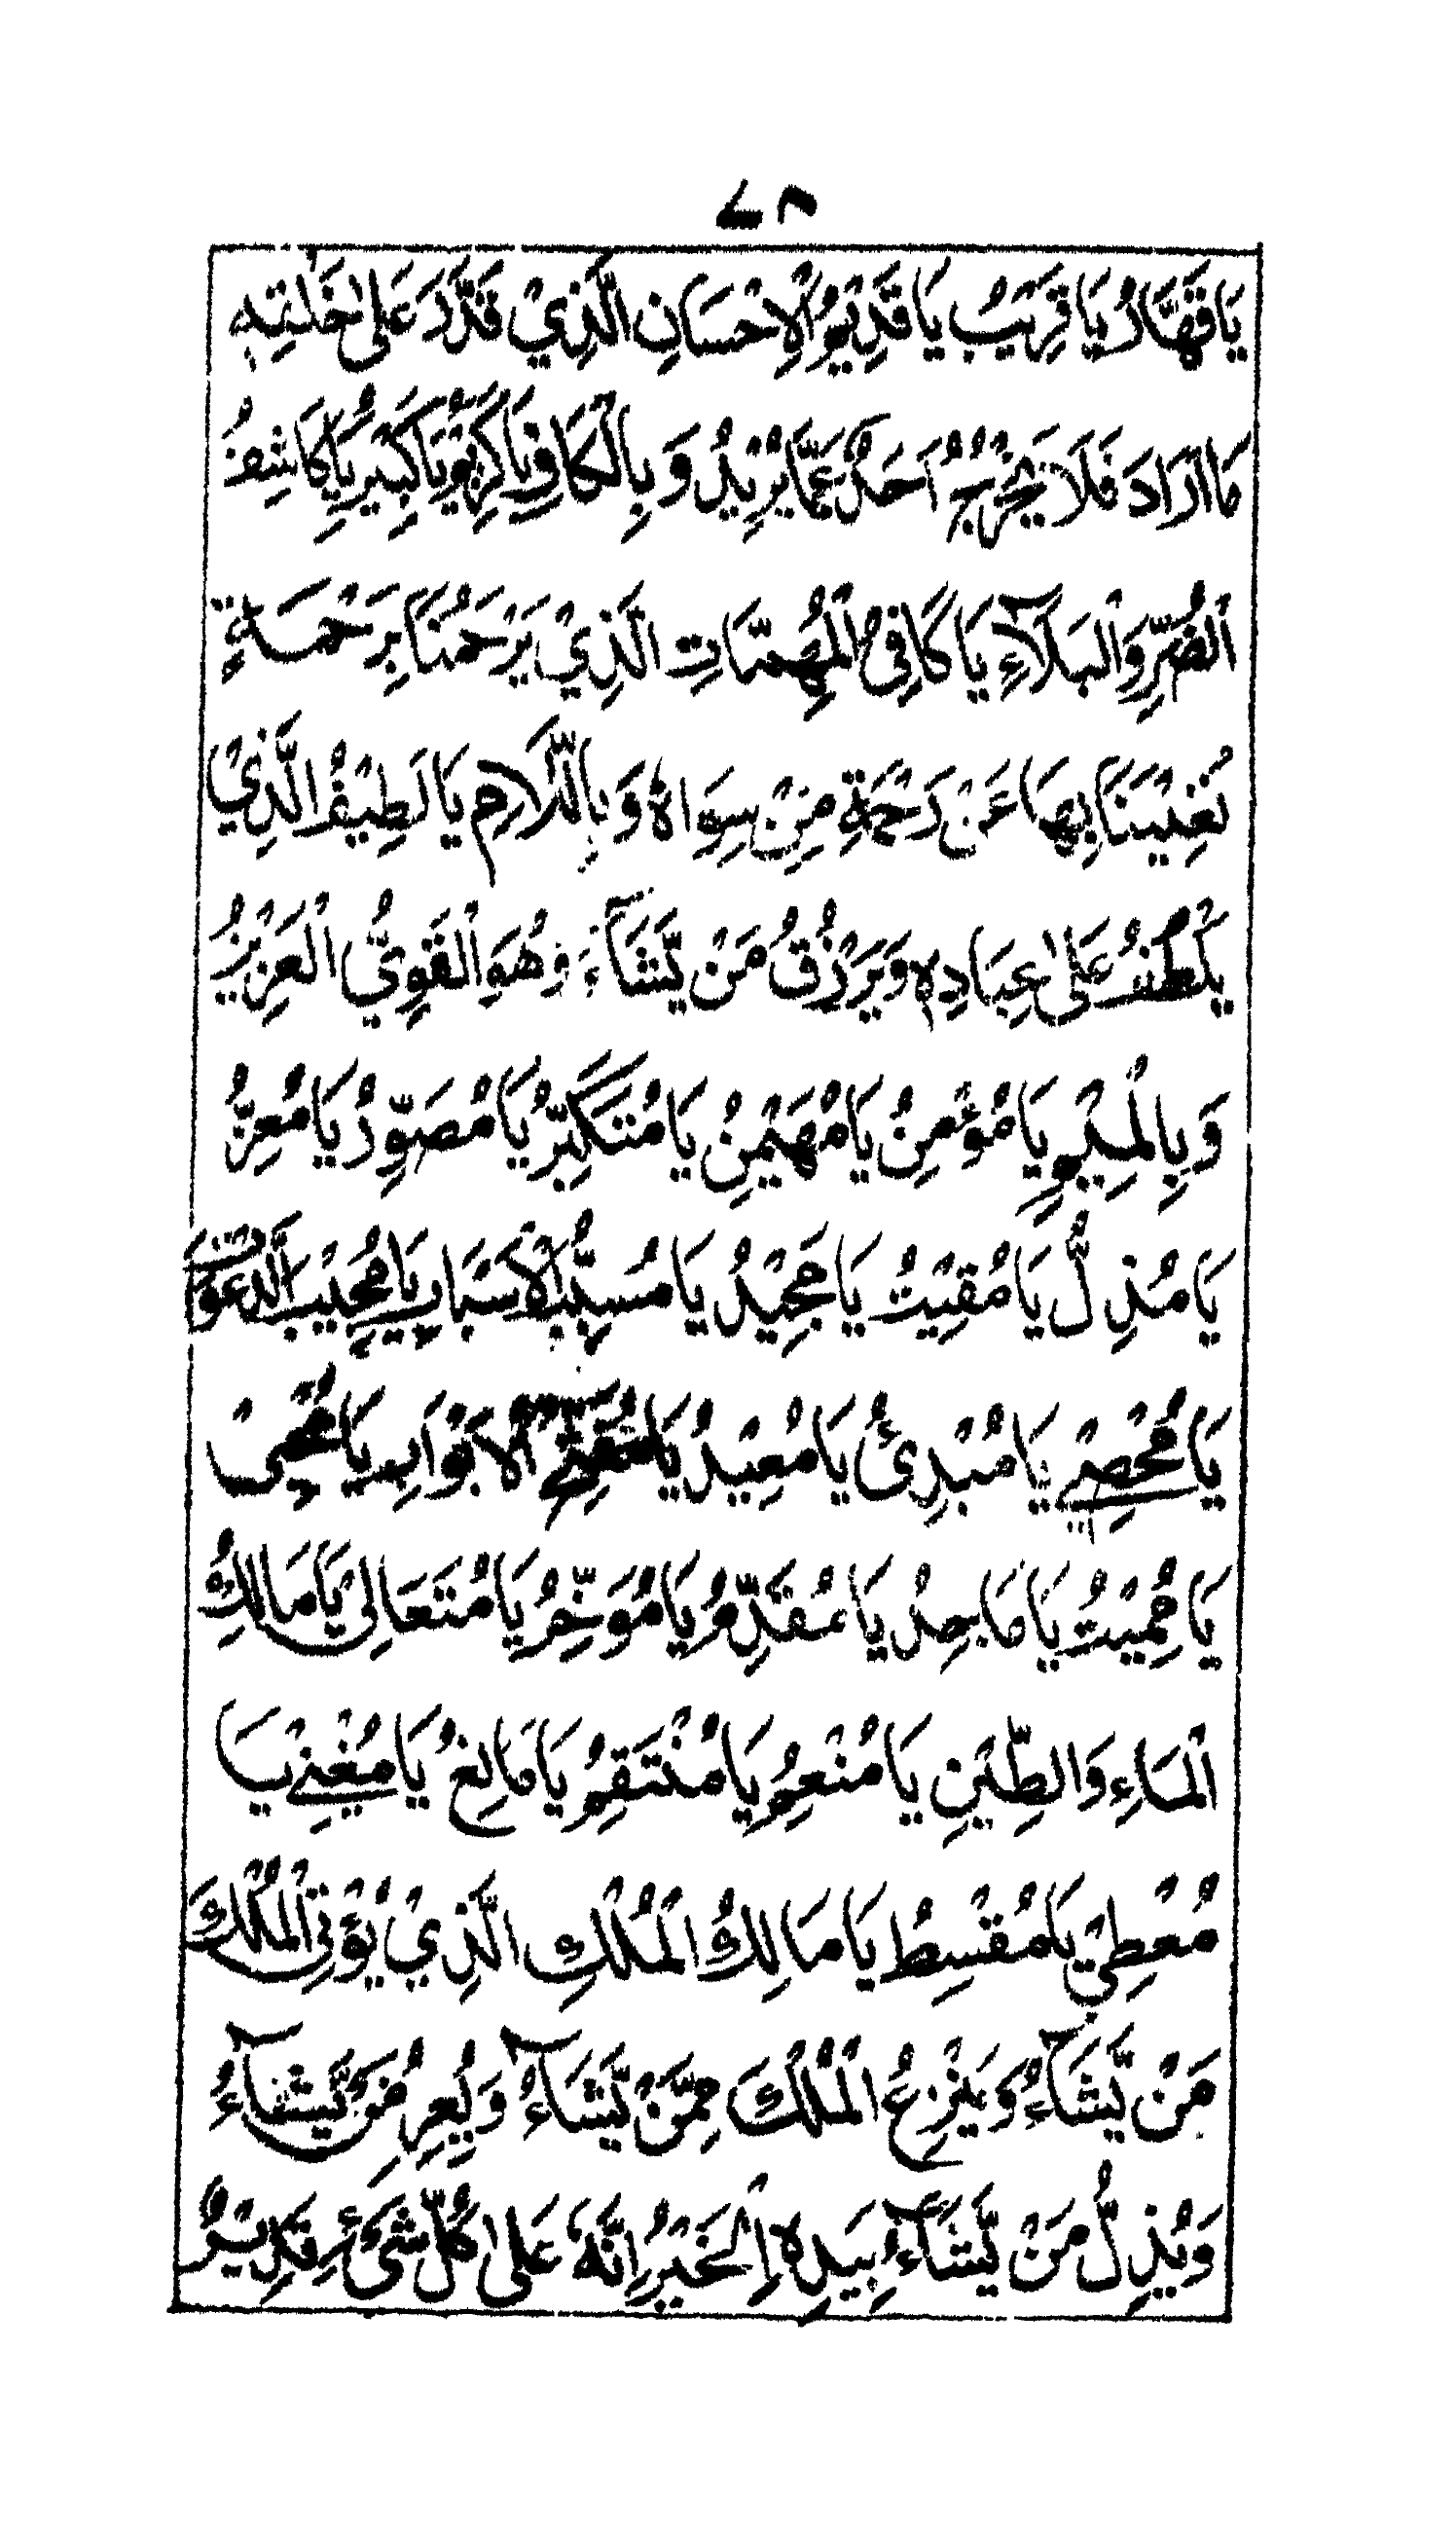 ٦٨
يَا قَهَّارُ يَا قَرِيْبُ يَا قَدِيْمُ الْاِحْسَانِ الَّذِيْ قَدَّرَ عَلٰى خَلْقِهٖ
مَا اَرَادَ فَلَا يَخْرُجُ اَحَدٌ عَمَّا يُرِيْدُ وَ بِالْكَافِ يَا كَرِيْمُ يَا كَبِيْرُ يَا كَاشِفُ
الضُّرِّ وَالْبَلَآءِ يَا كَافِىَ الْمُهِمَّاتِ الَّذِيْ يَرْحَمُنَا بِرَحْمَةٍ
تُغْنِيْنَا بِهَا عَنْ رَحْمَةِ مِنْ سِوَاهُ وَ بِاللَّامِ يَا لَطِيْفُ الَّذِيْ
يَلْطُفُ عَلٰى عِبَادِهٖ وَيَرْزُقُ مَنْ يَّشَآءُ وَهُوَ الْقَوِيُّ الْعَزِيْزُ
وَ بِالْمِيْمِ يَا مُؤْمِنُ يَا مُهَيْمِنُ يَا مُتَكَبِّرُ يَا مُصَوِّرُ يَا مُعِزُّ
يَا مُذِلُّ يَا مُقِيْتُ يَا مَجِيْدُ يَا مُسَبِّبَ الْاَسْبَابِ يَا مُجِيْبَ الدَّعْوَاتِ
يَا مُحْصِيْ يَا مُبْدِئُ يَا مُعِيْدُ يَا مُفَتِّحَ الْاَبْوَابِ يَا مُحْيِىْ
يَا مُمِيْتُ يَا مَاجِدُ يَا مُقَدِّمُ يَا مُوَخِّرُ يَا مُتَعَالِىْ يَا مَالِكُ
الْمَاءِ وَالطِّيْنِ يَا مُنْعِمُ يَا مُنْتَقِمُ يَا مَانِعُ يَا مُغْنِيْ يَا
مُعْطِيْ يَا مُقْسِطُ يَا مَالِكُ الْمُلْكِ الَّذِيْ يُؤْتِى الْمُلْكَ
مَنْ يَّشَآءُ وَيَنْزِعُ الْمُلْكَ مِمَّنْ يَّشَآءُ وَيُعِزُّ مَنْ يَّشَآءُ
وَيُذِلُّ مَنْ يَّشَآءُ بِيَدِهِ الْخَيْرُ اِنَّهٗ عَلٰى كُلِّ شَىْءٍ قَدِيْرٌ